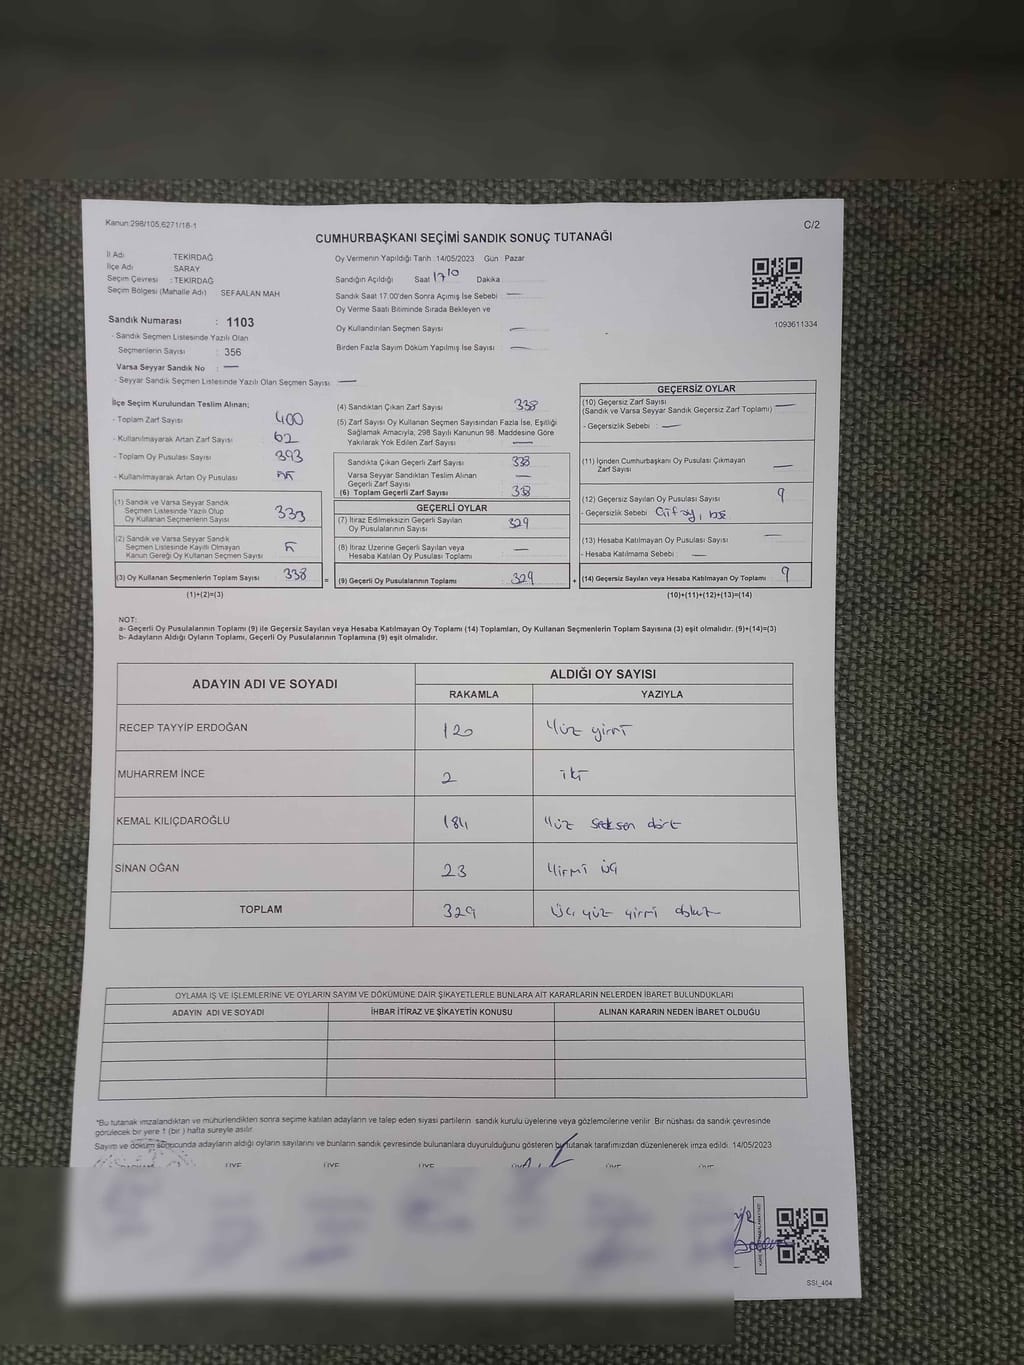 Kanun:298/105,6271/18-1
C/2
CUMHURBAŞKANI SEÇİMİ SANDIK SONUÇ TUTANAĞI
İl Adı TEKİRDAĞ
İlçe Adı SARAY
Seçim Çevresi : TEKİRDAĞ
Seçim Bölgesi (Mahalle Adı) SEFAALAN MAH
Sandık Numarası : 1103
- Sandık Seçmen Listesinde Yazılı Olan
Seçmenlerin Sayısı : 356
Varsa Seyyar Sandık No : —
- Seyyar Sandık Seçmen Listesinde Yazılı Olan Seçmen Sayısı : —
Oy Vermenin Yapıldığı Tarih : 14/05/2023 Gün : Pazar
Sandığın Açıldığı Saat 17 10 Dakika
Sandık Saat 17.00'den Sonra Açımış İse Sebebi —
Oy Verme Saati Bitiminde Sırada Bekleyen ve
Oy Kullandırılan Seçmen Sayısı —
Birden Fazla Sayım Döküm Yapılmış İse Sayısı —
1093611334
İlçe Seçim Kurulundan Teslim Alınan;
- Toplam Zarf Sayısı 400
- Kullanılmayarak Artan Zarf Sayısı 62
- Toplam Oy Pusulası Sayısı 393
- Kullanılmayarak Artan Oy Pusulası 55
(1) Sandık ve Varsa Seyyar Sandık
Seçmen Listesinde Yazılı Olup
Oy Kullanan Seçmenlerin Sayısı 333
(2) Sandık ve Varsa Seyyar Sandık
Seçmen Listesinde Kayıtlı Olmayan
Kanun Gereği Oy Kullanan Seçmen Sayısı 5
(3) Oy Kullanan Seçmenlerin Toplam Sayısı 338
(1)+(2)=(3)
(4) Sandıktan Çıkan Zarf Sayısı 338
(5) Zarf Sayısı Oy Kullanan Seçmen Sayısından Fazla İse, Eşitliği
Sağlamak Amacıyla, 298 Sayılı Kanunun 98. Maddesine Göre
Yakılarak Yok Edilen Zarf Sayısı —
Sandıkta Çıkan Geçerli Zarf Sayısı 338
Varsa Seyyar Sandıktan Teslim Alınan
Geçerli Zarf Sayısı —
(6) Toplam Geçerli Zarf Sayısı 338
GEÇERLİ OYLAR
(7) İtiraz Edilmeksizin Geçerli Sayılan
Oy Pusulalarının Sayısı 329
(8) İtiraz Üzerine Geçerli Sayılan veya
Hesaba Katılan Oy Pusulası Toplamı —
= (9) Geçerli Oy Pusulalarının Toplamı 329
GEÇERSİZ OYLAR
(10) Geçersiz Zarf Sayısı
(Sandık ve Varsa Seyyar Sandık Geçersiz Zarf Toplamı) —
- Geçersizlik Sebebi : —
(11) İçinden Cumhurbaşkanı Oy Pusulası Çıkmayan
Zarf Sayısı —
(12) Geçersiz Sayılan Oy Pusulası Sayısı 9
- Geçersizlik Sebebi Çift oy, boş
(13) Hesaba Katılmayan Oy Pusulası Sayısı —
- Hesaba Katılmama Sebebi : —
+ (14) Geçersiz Sayılan veya Hesaba Katılmayan Oy Toplamı 9
(10)+(11)+(12)+(13)=(14)
NOT:
a- Geçerli Oy Pusulalarının Toplamı (9) ile Geçersiz Sayılan veya Hesaba Katılmayan Oy Toplamı (14) Toplamları, Oy Kullanan Seçmenlerin Toplam Sayısına (3) eşit olmalıdır. (9)+(14)=(3)
b- Adayların Aldığı Oyların Toplamı, Geçerli Oy Pusulalarının Toplamına (9) eşit olmalıdır.
ADAYIN ADI VE SOYADI ALDIĞI OY SAYISI
RAKAMLA YAZIYLA
RECEP TAYYİP ERDOĞAN 120 Yüz yirmi
MUHARREM İNCE 2 iki
KEMAL KILIÇDAROĞLU 184 Yüz seksen dört
SİNAN OĞAN 23 Yirmi üç
TOPLAM 329 Üç yüz yirmi dokuz
OYLAMA İŞ VE İŞLEMLERİNE VE OYLARIN SAYIM VE DÖKÜMÜNE DAİR ŞİKAYETLERLE BUNLARA AİT KARARLARIN NELERDEN İBARET BULUNDUKLARI
ADAYIN ADI VE SOYADI İHBAR İTİRAZ VE ŞİKAYETİN KONUSU ALINAN KARARIN NEDEN İBARET OLDUĞU
*Bu tutanak imzalandıktan ve mühürlendikten sonra seçime katılan adayların ve talep eden siyasi partilerin sandık kurulu üyelerine veya gözlemcilerine verilir. Bir nüshası da sandık çevresinde
görülecek bir yere 1 (bir ) hafta süreyle asılır.
Sayım ve döküm sonucunda adayların aldığı oyların sayılarını ve bunların sandık çevresinde bulunanlara duyurulduğunu gösteren bu tutanak tarafımızdan düzenlenerek imza edildi. 14/05/2023
BAŞKAN ÜYE ÜYE ÜYE ÜYE ÜYE ÜYE
SSI_404